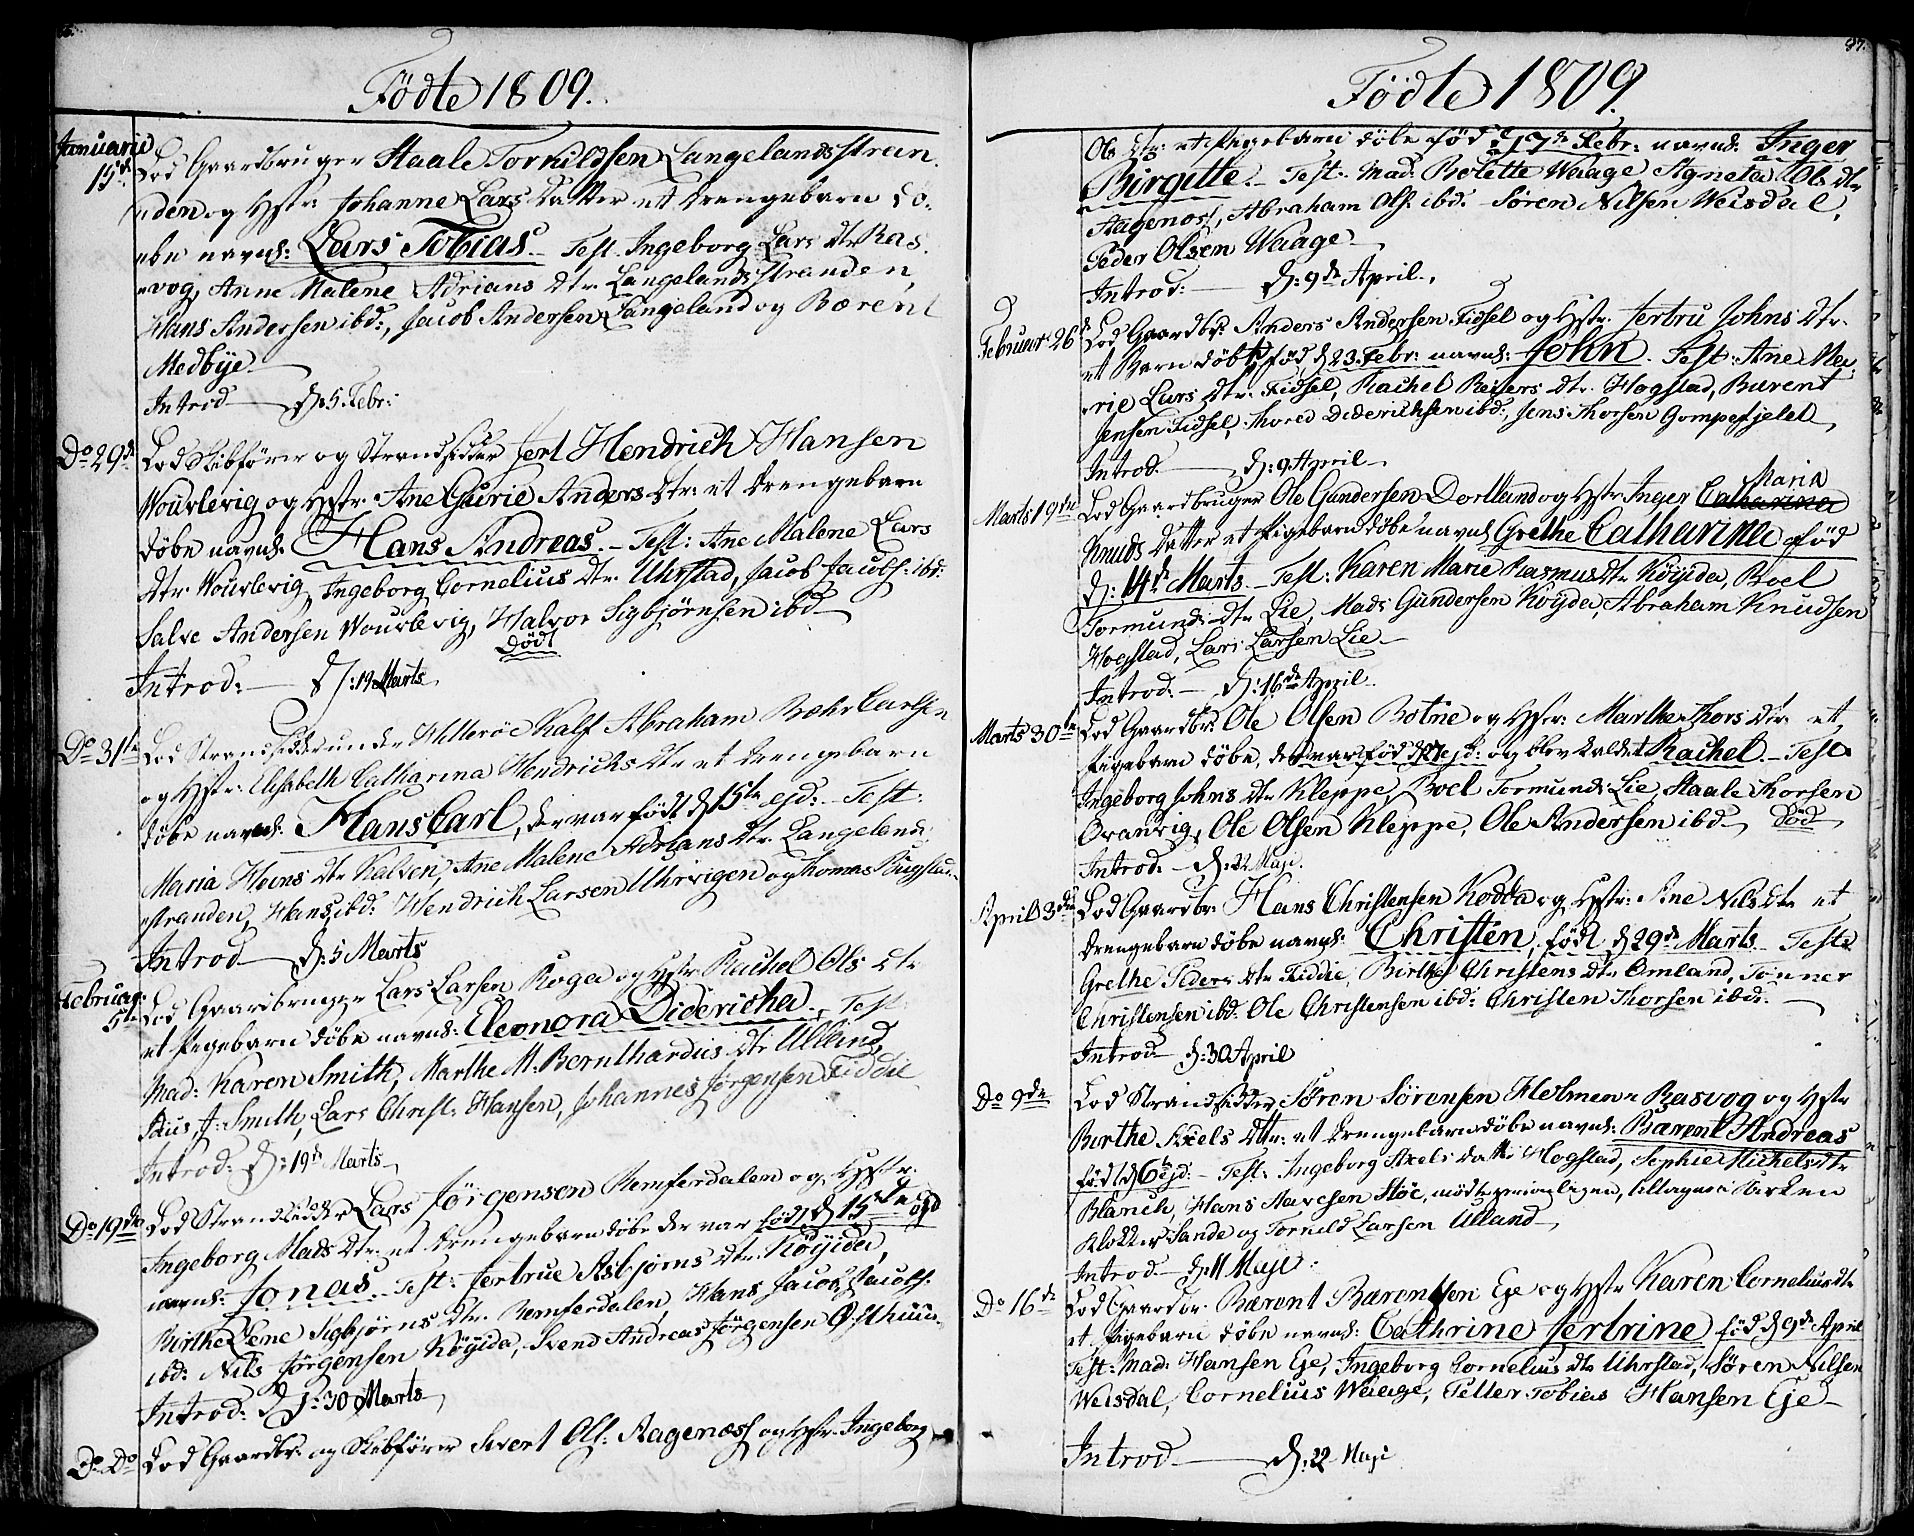 Födte 1809.
Januarii 15de Lod Gaardbruger Staale Torkildsen Langelandsstran-
den og Hstr: Johanne Lars Datter et Drengebarn dö-
be navnl: Lars Tobias. Test. Ingeborg Lars Dtr Ras-
vog, Anne Malene Adrians Dtr. Langelandsstranden,
Hans Andersen ibd:, Jacob Andersen Langeland og Bærent
Medbye.
Introd d: 5 Febr:
Do 29de Lod Skibförer og Strandsidder Jert Hendrich Hansen
Wourlevig og Hstr: Ane Gurie Anders Dtr: et Drengebarn
döbe navnl. Hans Andreas. Test: Ane Malene Lars
Dtr Wourlevig, Ingeborg Cornelius Dtr. Uhrstad, Jacob Jacobs: ibd:
Salve Andersen Wourlevig, Halvor Sigbjörnsen ibd
Död
Introd: D: 19 Marts
Do 31te Lod Strandsidder under Hilleröe Kalf Abraham Bæhr Carlsen
og Hstr: Elisabeth Catharina Hendrichs Dtr et Drengebarn
döbe navnl. Hans Carl, der var född d 15te ejd: Test:
Maria Heins Dtr Kalven, Ane Malene Adrians Dtr. Langelands-
stranden, Hans ibd: Hendrich Larsen Uhrvigen og Thomas Rugstad
Introd d: 5 Marts
Februar: 5te Lod Gaardbruger Lars Larsen Roga og Hstr Rachel Ols Dtr
et Pigebarn döbe navnl: Eleonora Didericha. Test:
Mad: Karen Smith, Marthe M. Bernthardus Dtr Ulland,
J: Smith, Lars Christ: Hansen, Johannes Jörgensen Fiddie
Introd: d: 19de Marts
Do 19de Lod Strandsidder Lars Jörgensen Remferdalen og Hstr.
Ingeborg Mads Dtr: et Drengebarn döbe der var född d 15de ejd
navnl: Jonas. Test: Jertrue Asbjörns Dtr. Köyida,
Birthe Lene Sigbjörns Dtr. Remferdalen, Hans Jacob Jacobs:
ibd: Nils Jörgensen Köyida, Svend Andreas Jörgensen Østhuus
Introd: d: 30 Marts
Do Do Lod Gaardbr: og Skibförer Sivert Ols: Aagenæss og Hstr. Ingeborg
87.
Födte 1809.
Ols Dtr: et Pigebarn döbe föd d 17de Febr: navnl: Inger
Birgitte. Test. Mad: Bolette Waage Agneta Ols Dtr
Aagenoss, Abraham Ols. ibd. Sören Nilsen Weisdal,
Peder Olsen Waage
Introd: d: 9de April.
Februar 26 Lod Gaardbr: Anders Andersen Fidsel og Hstr. Jertru Johns Dtr.
et Barn döbt föd d 23. Febr: navnl: John. Test: Ane Ma-
rie Lars Dtr. Fidsel, Rachel Reiers Dtr. Hogstad, Bærent
Jensen Fidsel, Thored Dederichsen ibd:, Jens Thorsen Gompefjelet
Introd. d: 9 April.
Maria
Marts 19de Lod Gaardbruger Ole Gundersen Dortland og Hstr Inger Catharina
Knuds Datter et Pigebarn döbe navnl Grethe Catharina föd
d: 14de Marts. Test: Karen Marie Rasmus Dtr Köyida, Boel
Tormunds Dtr Lie, Mads Gundersen Köyda, Abraham Knudsen
Hogstad, Lars Larsen Lie
Introd: d: 16de April.
Marts 30te Lod Gaardbr: Ole Olsen Botne og Hstr: Marthe Thors Dtr. et
Pigebarn döbe, der var föd d ejd: og blev kaldet Rachel. Test
Ingeborg Johns Dtr Kleppe, Boel Tormunds Lie, Staale Thorsen
Qvanvig, Ole Olsen Kleppe, Ole Andersen ibd Död
Introd. d: 22 Maji.
April 3die Lod Gaardbr: Hans Christensen Kodda og Hstr: Ane Nils Dtr et
Drengebarn döbe navnl. Christen, född d 29de Marts. Test:
Grethe Peders Dtr Fiddie, Birthe Christens Dtr Omland, Tönner
Christensen ibd: Ole Christensen ibd: Christen Thorsen ibd:
Introd. d: 30 April
Do 9de Lod Strandsidder Sören Sörensen Holmen Rasvog og Hstr
Birthe Axels Dtr: et Drengebarn döbe navnl: Bærent Andreas
född d 6te ejd: Test: Ingeborg Axels Datt: Hogstad, Sophie Michels Dtr
Blanch, Hans Stöe, mödte personligen, tillagnes i Kirken
Klokker Sande og Torkild Larsen Ulland
Introd. d: 11 Maji
Do 16de Lod Gaardbr. Bærent Bærentsen Eje og Hstr Karen Cornelius Dtr
et Pigebarn döbe navnl: Cathrine Jertrine föd d 9de April
Test: Mad: Hansen Eje, Ingeborg Cornelius Dtr Uhrstad, Sören Nilsen
Weisdal, Cornelius Waage, Petter Tobias Hansen Eje
Introd d: 22 Maji